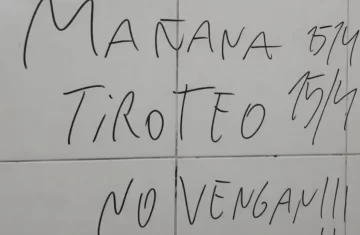 MAÑANA 5/4
TIROTEO 15/4
NO VENGAN!!!